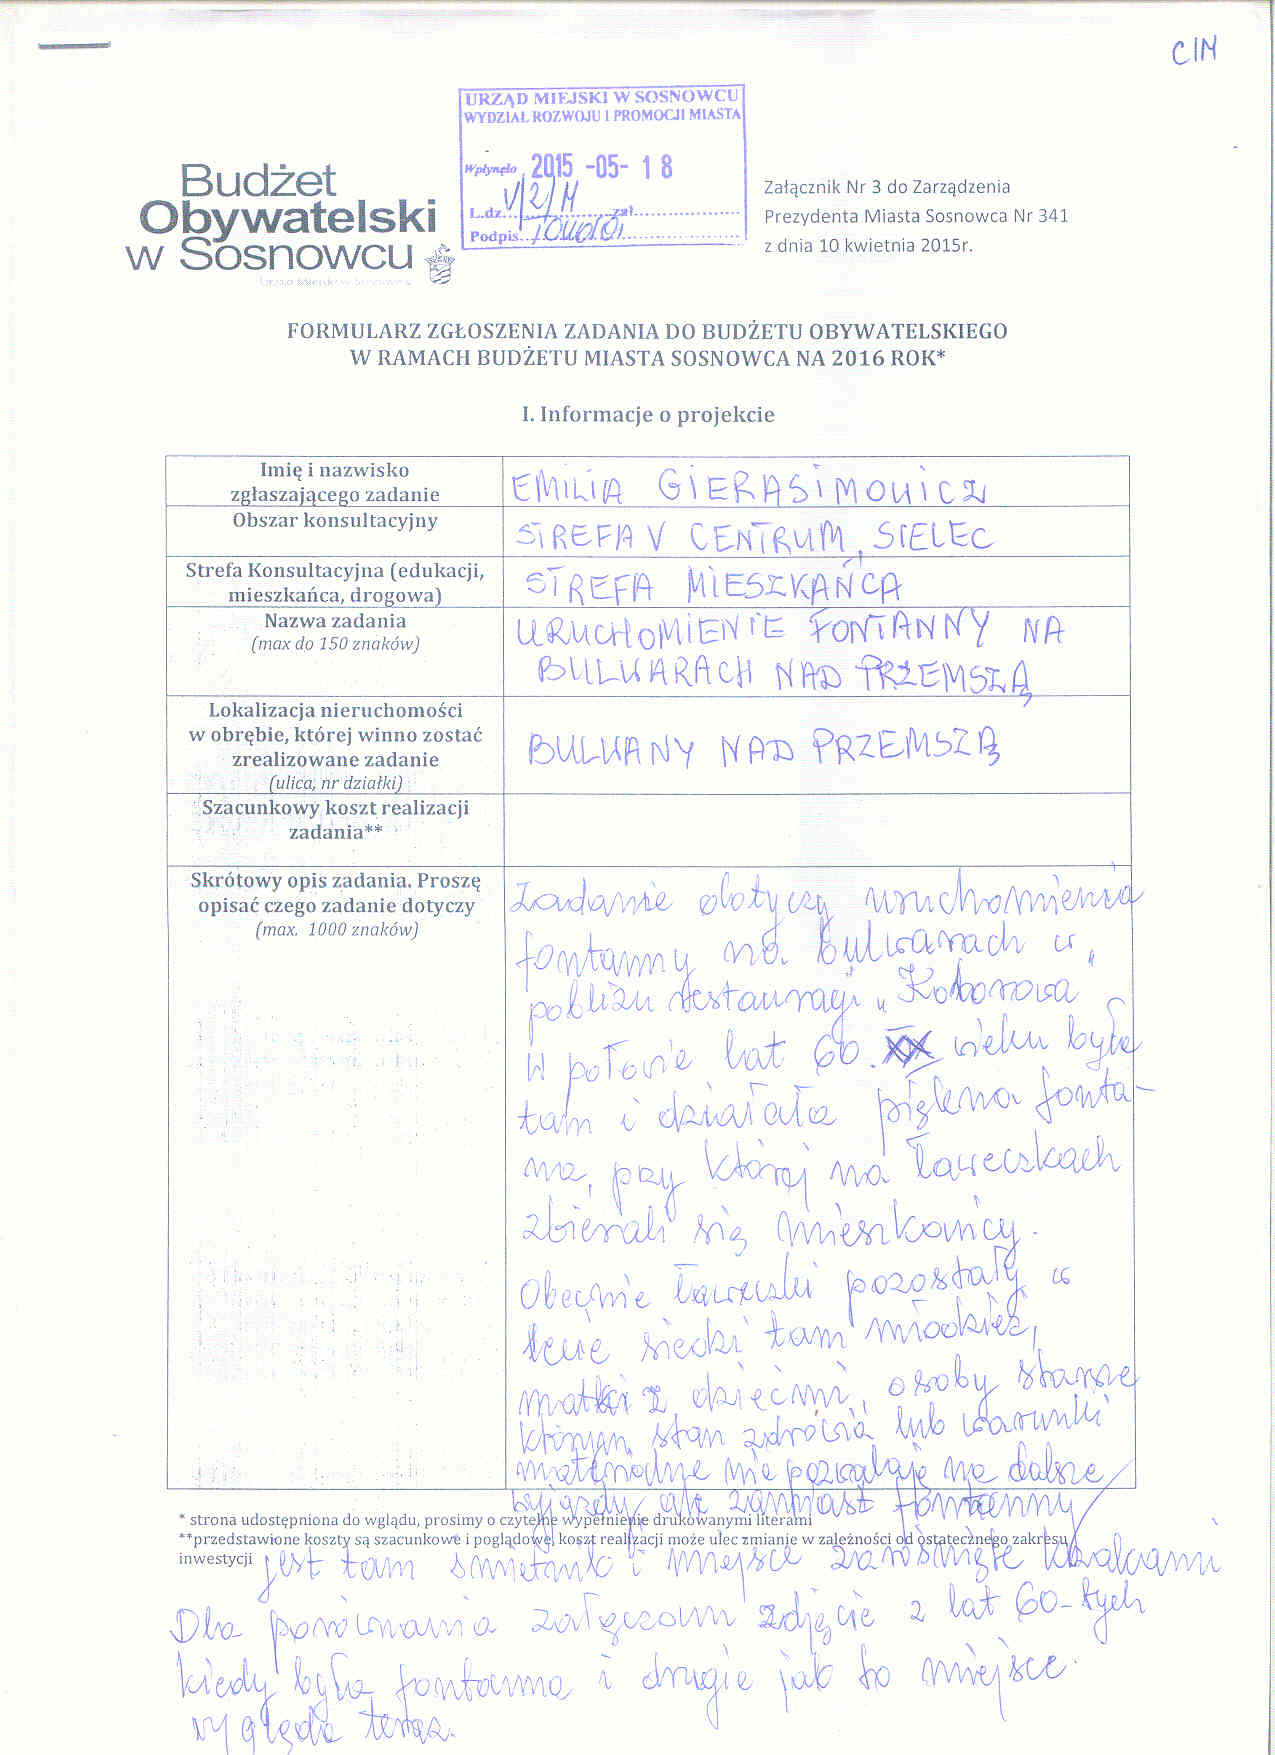 CIM
URZĄD MIEJSKI W SOSNOWCU
WYDZIAŁ ROZWOJU I PROMOCJI MIASTA
Wpłynęło 2015 -05- 18
L.dz. zał.
Podpis
Budżet
Obywatelski
w Sosnowcu
Załącznik Nr 3 do Zarządzenia
Prezydenta Miasta Sosnowca Nr 341
z dnia 10 kwietnia 2015r.
FORMULARZ ZGŁOSZENIA ZADANIA DO BUDŻETU OBYWATELSKIEGO
W RAMACH BUDŻETU MIASTA SOSNOWCA NA 2016 ROK*
I. Informacje o projekcie
Imię i nazwisko
zgłaszającego zadanie
EMILIA GIERASIMOWICZ
Obszar konsultacyjny
STREFA V CENTRUM, SIELEC
Strefa Konsultacyjna (edukacji,
mieszkańca, drogowa)
STREFA MIESZKAŃCA
Nazwa zadania
(max do 150 znaków)
URUCHOMIENIE FONTANNY NA
BULWARACH NAD PRZEMSZĄ
Lokalizacja nieruchomości
w obrębie, której winno zostać
zrealizowane zadanie
(ulica, nr działki)
BULWARY NAD PRZEMSZĄ
Szacunkowy koszt realizacji
zadania**
Skrótowy opis zadania. Proszę
opisać czego zadanie dotyczy
(max. 1000 znaków)
Zadanie dotyczy uruchomienia
fontanny na Bulwarach w
pobliżu restauracji
W połowie lat 60. XX wieku była
tam i działała piękna fonta-
na, przy której na ławeczkach
zbierali się mieszkańcy.
Obecnie ławeczki pozostały w
lecie siedzi tam młodzież,
matki z dziećmi, osoby starsze
którym stan zdrowia lub warunki
materialne nie pozwalają na dalsze
wyjazdy, ale zamiast fontanny
* strona udostępniona do wglądu, prosimy o czytelne wypełnienie drukowanymi literami
**przedstawione koszty są szacunkowe i poglądowe, koszt realizacji może ulec zmianie w zależności od ostatecznego zakresu
inwestycji
jest tam śmietnik i miejsce zarośnięte
Dla porównania załączam zdjęcie z lat 60-tych
kiedy była fontanna i drugie jak to miejsce
wygląda teraz.